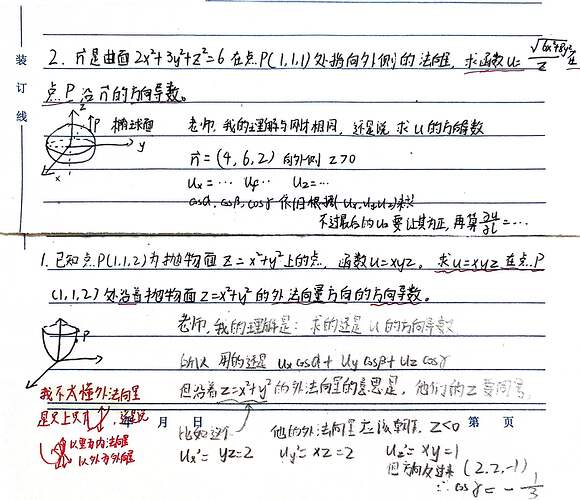 装
订
线
2. n⃗是曲面 2x²+3y²+z²=6 在点P(1,1,1)处指向外侧的法向量, 求函数 u= √(6x²+8y²)/z 在
点 P 沿 n⃗ 的方向导数。
z
P 椭球面
y
x
老师, 我的理解与 相同, 还是说 求 u 的方向导数
n⃗=(4,6,2) 向外侧 z>0
Ux=… Uy… Uz=…
cosα, cosβ, cosγ 根据(Ux,Uy,Uz)来
不过最后的 Uz 要让其为正, 再算 ∂u/∂l =…
1. 已知点P(1,1,2)为抛物面 z=x²+y² 上的点, 函数 u=xyz. 求 u=xyz 在点P
(1,1,2) 处沿着抛物面 z=x²+y² 的外法向量方向的方向导数。
P
老师, 我的理解是: 求的还是 u 的方向导数
所以 用的还是 Ux cosα + Uy cosβ + Uz cosγ
但沿着 z=x²+y² 的外法向量的意思是, 他们的 z 要同号
我不太懂外法向量
是只上只下, 还是说
以里为内法向量
以外为外法向量
年 月 日
第 页
比如这个 他的外法向量应该朝下, z<0
Ux'= yz=2 Uy'= xz=2 Uz'= xy=1
但方向反过来 (2,2,-1)
∴ cosγ = -1/3